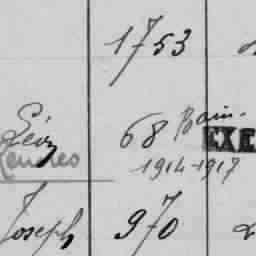 1753
Léon 68 Bain. EXE
Rennes 1914-1917
Joseph 970